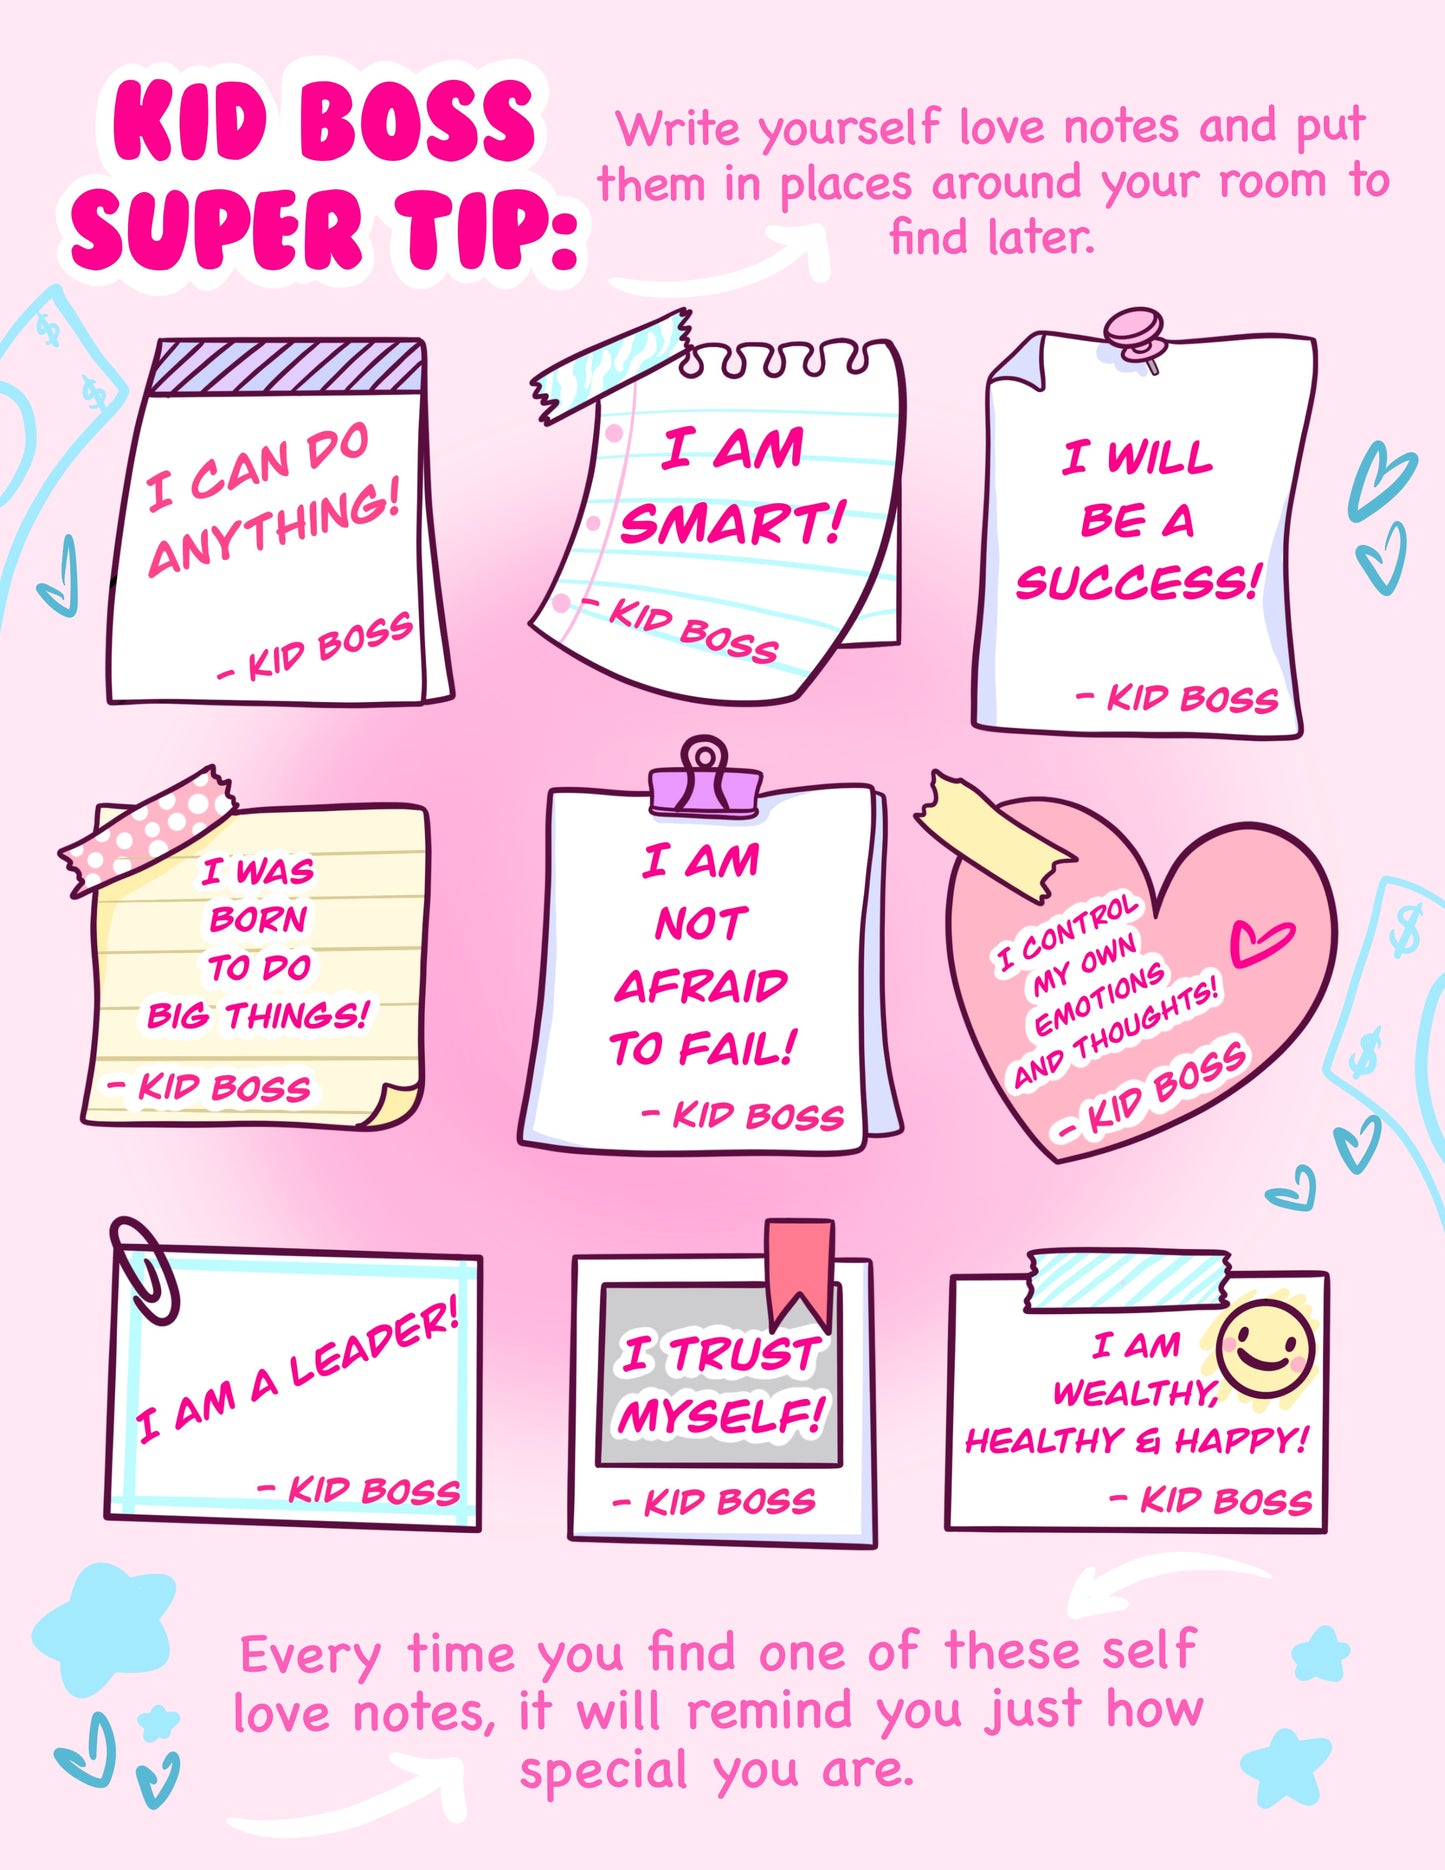 KID BOSS
SUPER TIP:
Write yourself love notes and put
them in places around your room to
find later.
I CAN DO
ANYTHING!
- KID BOSS
I AM
SMART!
- KID BOSS
I WILL
BE A
SUCCESS!
- KID BOSS
I WAS
BORN
TO DO
BIG THINGS!
- KID BOSS
I AM
NOT
AFRAID
TO FAIL!
- KID BOSS
I CONTROL
MY OWN
EMOTIONS
AND THOUGHTS!
- KID BOSS
I AM A LEADER!
- KID BOSS
I TRUST
MYSELF!
- KID BOSS
I AM
WEALTHY,
HEALTHY & HAPPY!
- KID BOSS
Every time you find one of these self
love notes, it will remind you just how
special you are.